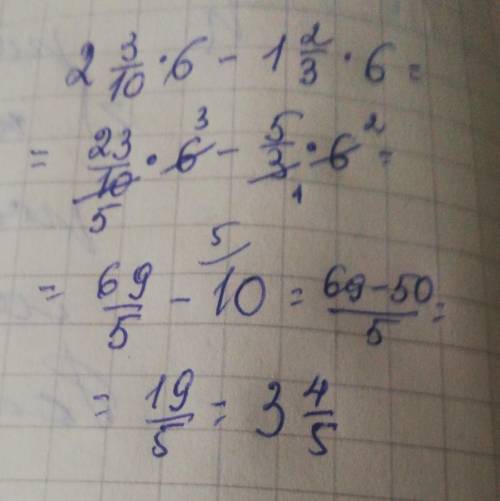 2 3/10 · 6 - 1 2/3 · 6 =
= 23/10 5 · 6 3 - 5/3 1 · 6 2 =
= 69/5 - 10 5 = 69-50/5 =
= 19/5 = 3 4/5